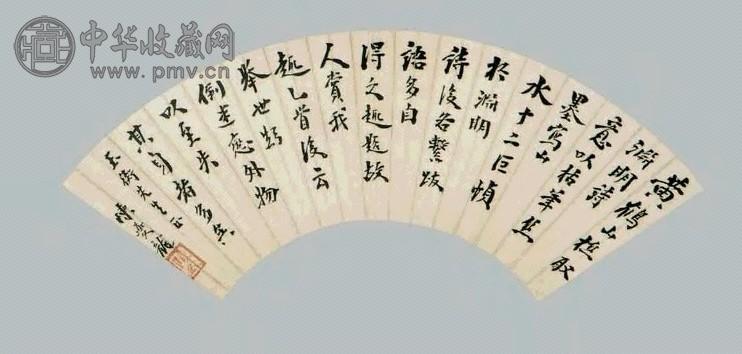 中华收藏网
www.pmv.cn
黃鶴山樵取
淵明詩
意以枯筆焦
墨寫山
水十二巨幀
於淵明
詩後各繫跋
語多自
得之趣題故
人賞我
趣乙首後云
舉世
倒應外物
以至者多矣
其身
先生正
陳夔龍